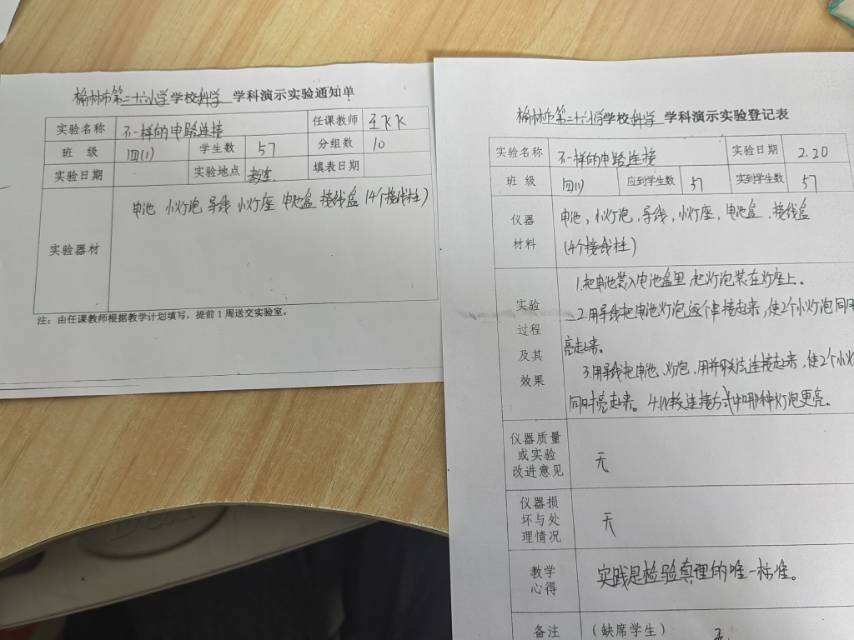 榆林市第二十六小学学校科学 学科演示实验通知单
实验名称 不一样的电路连接 任课教师
班 级 四(1) 学生数 57 分组数 10
实验日期 实验地点 教室 填表日期
实验器材 电池 小灯泡 导线 小灯座 电池盒 接线盒 (4个接线柱)
注：由任课教师根据教学计划填写，提前1周送交实验室。
榆林市第二十六小学学校科学 学科演示实验登记表
实验名称 不一样的电路连接 实验日期 2.20
班 级 四(1) 应到学生数 57 实到学生数 57
仪器 电池，小灯泡，导线，小灯座，电池盒，接线盒
材料 (4个接线柱)
实验
过程
及其
效果
1.把电池装入电池盒里，把灯泡装在灯座上。
2.用导线把电池灯泡逐个串接起来，使2个小灯泡同时
亮起来。
3.用导线把电池、灯泡，用并联法连接起来，使2个小
同时亮起来。4.比较连接方式中哪种灯泡更亮。
仪器质量
或实验
改进意见
无
仪器损
坏与处
理情况
无
教学
心得
实践是检验真理的唯一标准。
备注 (缺席学生)